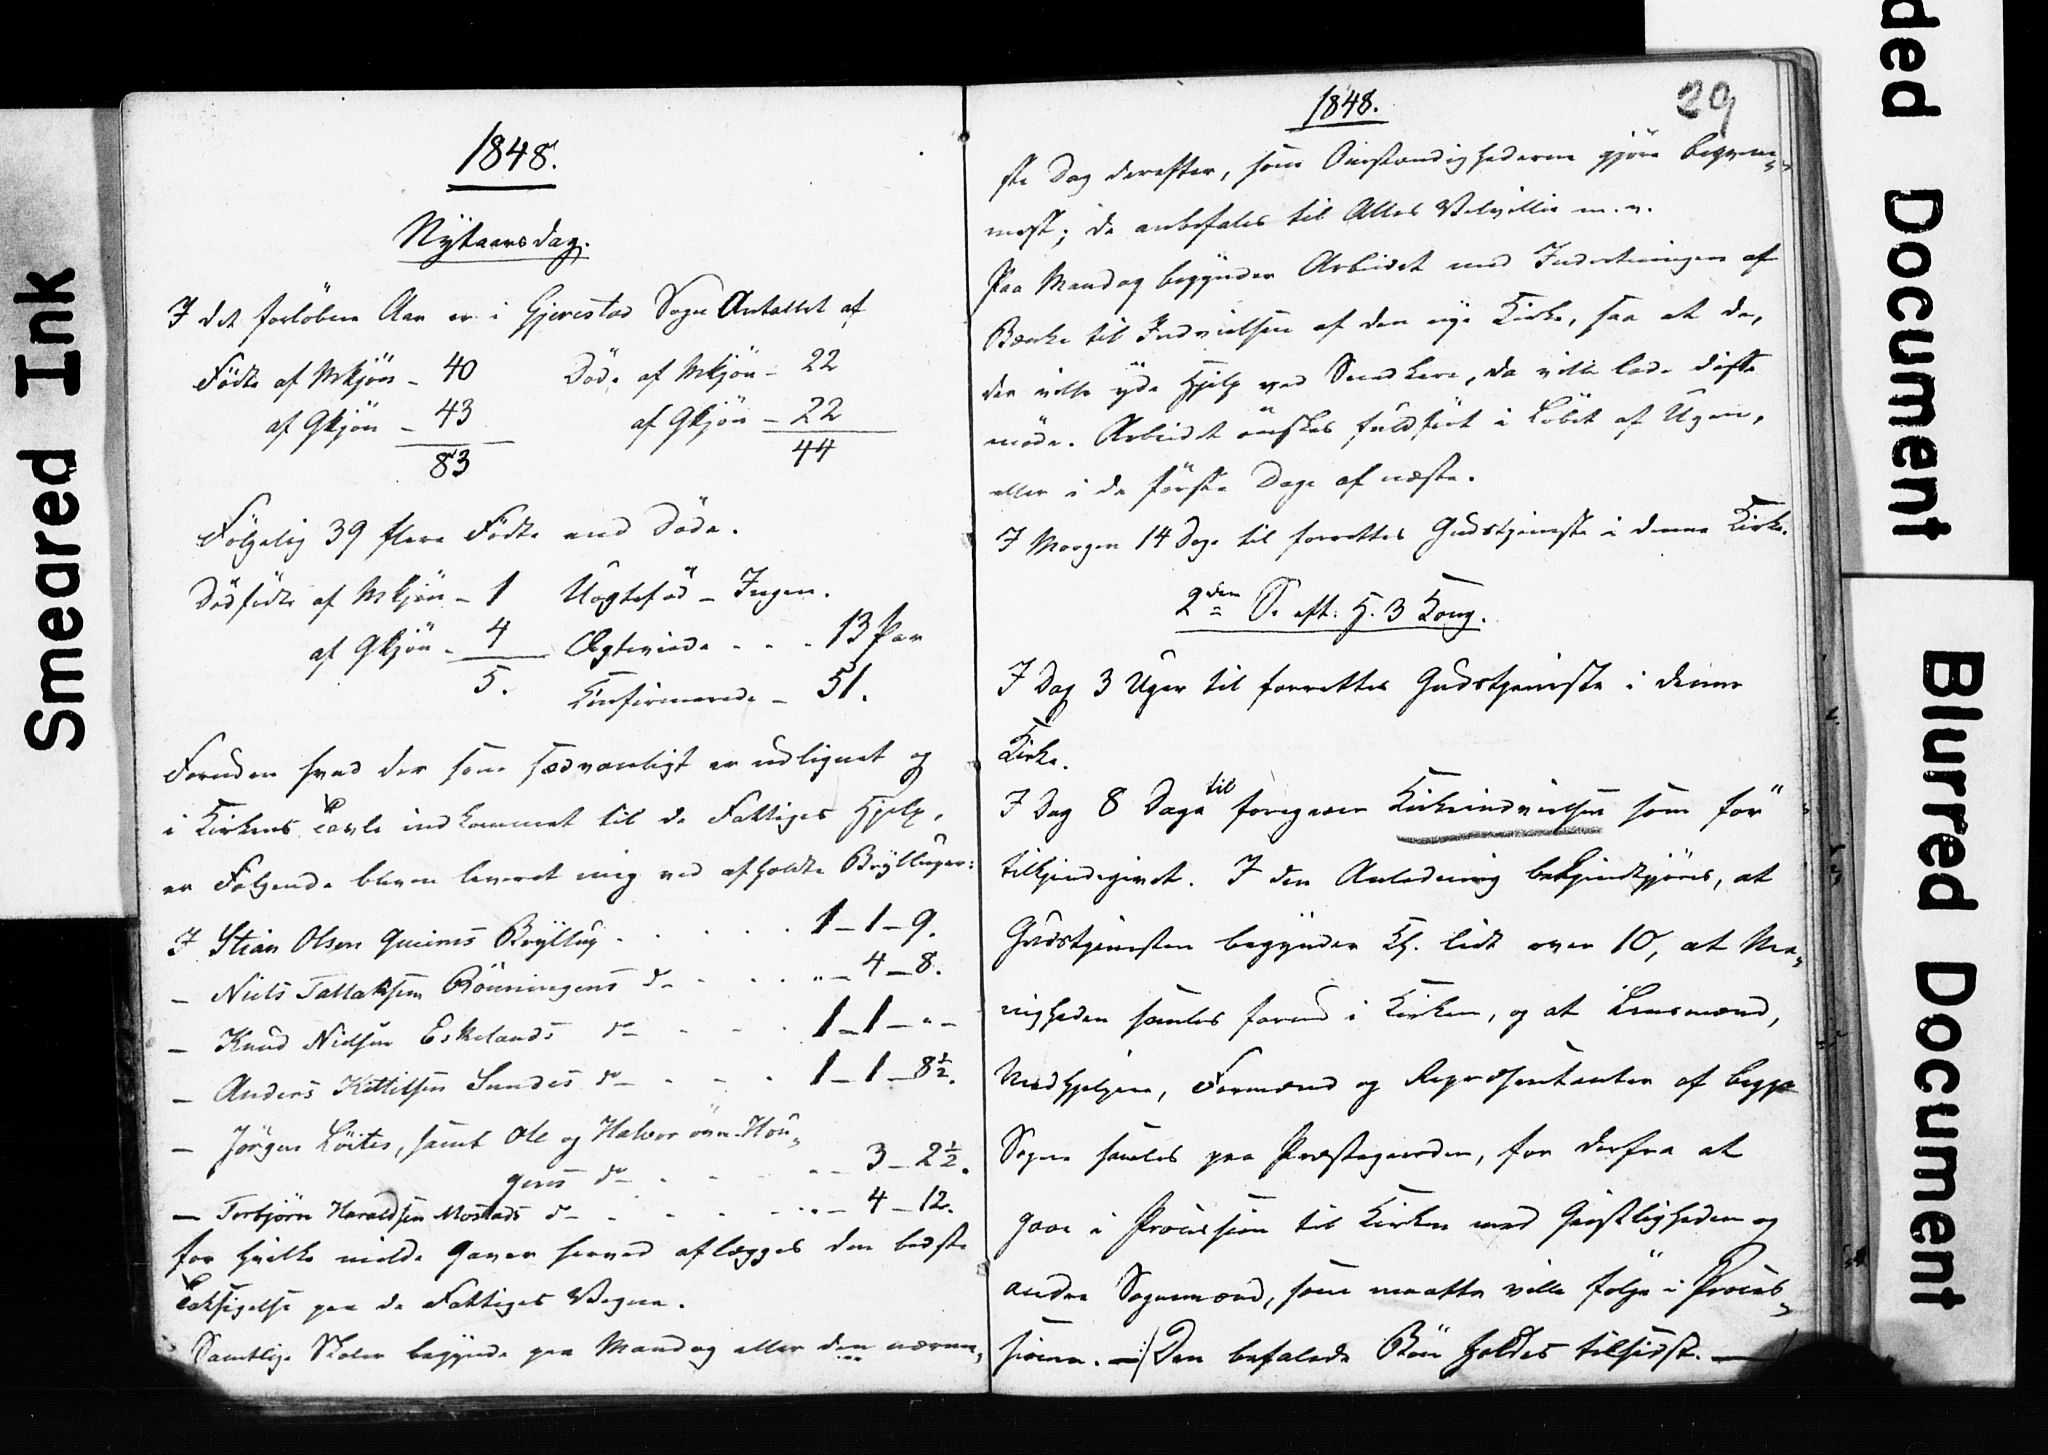 Smeared Ink
1848.
Nÿtaarsdag.
I det forløbne Aar er i Gjerestad Sogn Antallet af
Födte af Mkjön - 40 Döde af Mkjön - 22
af Qkjön - 43 af Qkjön - 22
83 44
Fölgelig 39 flere Födte end Döde.
Dödfödte af Mkjön - 1 Uægteföd - Ingen.
af Qkjön - 4 Ægteviede - - - 13 Par
5. Konfirmerede - 51.
Foruden hvad der som sædvanligt er udlignet og
i Kirkens Tavle indkommet til de Fattiges Hjelp,
er Følgende bleven leveret mig ved afholdte Brÿlluper:
I Stian Olsen Bryllup . . . . . 1 - 1 - 9.
- Niels Tallaksen Rönningens do - . . „ - 4 - 8.
- Knud Nielsen Eskelands do - - - 1 - 1 - „ -
- Anders Kittilsen Sundes do - - - 1 - 1 - 8½.
- Jörgen Löites, samt Ole og Halvor övre Hou-
gens do - - - „ - 3 - 2½.
- Torbjörn Haraldsen Mostads do - - - - „ - 4 - 12.
for hvilke milde Gaver herved aflægges den bedste
Taksigelse paa de Fattiges Vegne.
Samtlige Skoler begynde paa Mandag eller den nærme-
1848. 29
ste Dag derefter, som Omstændighederne gjöre beqvem-
mest; de anbefales til Alles Velvillie m. v.
Paa Mandag begÿnder Arbeidet med Indretningen af
Bænke til Indvielsen af den nye Kirke, saa at de,
der ville ÿde Hjelp ved Snedkere, da ville lade disse
möde. Arbeidet önskes fuldfört i Löbet af Ugen,
eller i de förste Dage af næste.
I Morgen 14 Dage til forrettes Gudstjeneste i denne Kirke.
2den S. eft. H. 3 Kong.
I Dag 3 Uger til forrettes Gudstjeneste i denne
Kirke.
I Dag 8 Dage til foregaaer Kirkeindvielsen som for"
tilkjendegivet. I den Anledning bekjendtgjöres, at
Gudstjenesten begÿnder Kl. lidt over 10, at Me-
nigheden samles forud i Kirken, og at Lensmænd,
Medhjelpere, Formænd og Repræsentanter af begge
Sogne samles paa Præstegaarden, for derfra at
gaae i Procession til Kirken med Geistligheden og
andre Sognemænd, som maatte ville fölge i Proces-
sionen. - Den befalede Bön holdes tilsidst. -
ded Document
Blurred Document